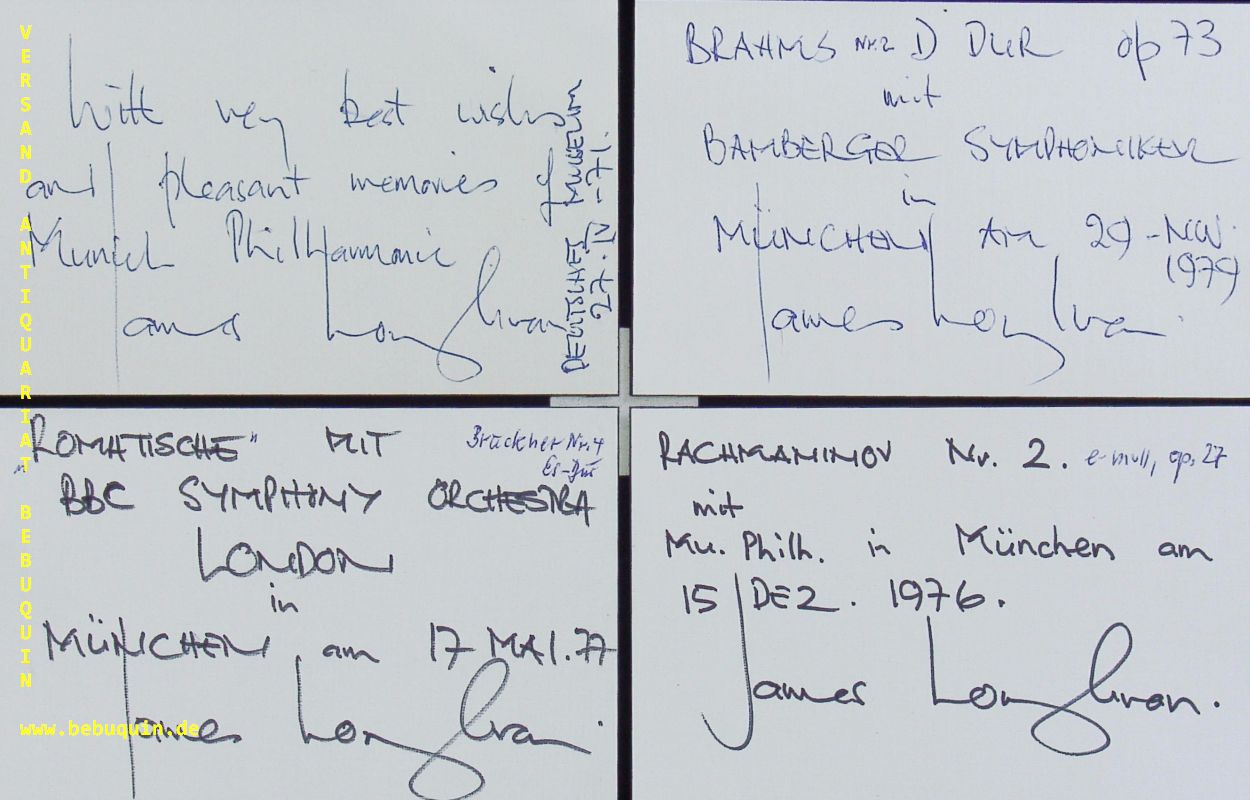 With very best wishes
and pleasant memories of
Munich Philharmonic
James Loughran
DEUTSCHES MUSEUM
27.IV-71.
BRAHMS Nr.2 D DUR op 73
mit
BAMBERGER SYMPHONIKER
in
MÜNCHEN AM 29-NOV.
1979
James Loughran.
"ROMATISCHE" MIT
Bruckner Nr.4
Es-Dur
BBC SYMPHONY ORCHESTRA
LONDON
in
MÜNCHEN am 17 MAI.77
James Loughran.
RACHMANINOV Nr. 2. e-moll, op. 27
mit
Mu. Philh. in München am
15 DEZ. 1976.
James Loughran.
VERSANDANTIQUARIAT BEBUQUIN
www.bebuquin.de